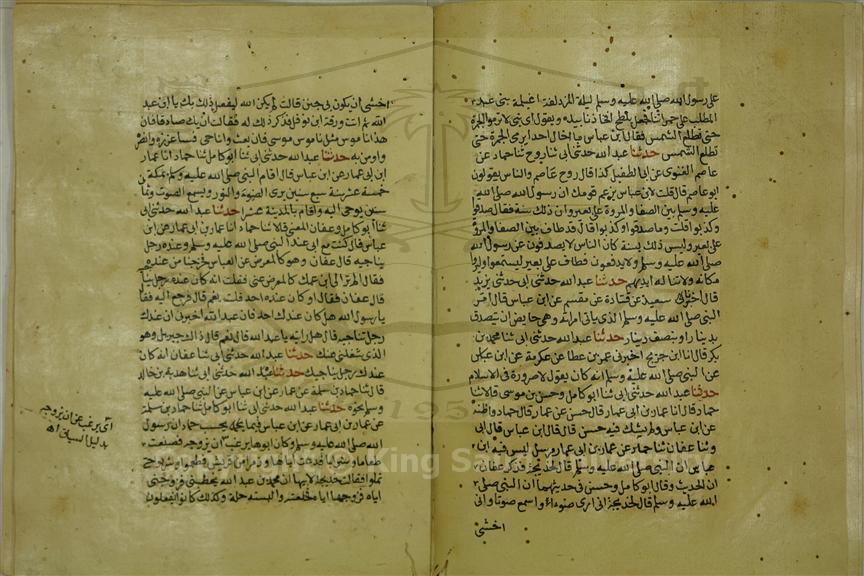 على رسول الله صلى الله عليه وسلم ليلة المزدلفة اغيلمة بنى عبد
المطلب على حمراتنا فجعل يلطح افخاذنا بيده ويقول ابنى لا ترموا الجمرة
حتى تطلع الشمس فقال ابن عباس ما اخال احدا يرمى الجمرة حتى
تطلع الشمس حدثنا عبد الله حدثنى ابى ثنا روح ثنا حماد عن
عاصم الغنوى عن ابى الطفيل كذا قال روح عاصم والناس يقولون
ابو عاصم قال قلت لابن عباس يزعم قومك ان رسول الله صلى الله
عليه وسلم بين الصفا والمروة على بعير وان ذلك سنة فقال صدقوا
وكذبوا قلت وما صدقوا وكذبوا قال قد طاف بين الصفا والمروة
على بعير وليس ذلك بسنة كان الناس لا يصدفون عن رسول الله
صلى الله عليه وسلم ولا يدفعون فطاف على بعير ليسمعوا وليروا
مكانه ولا تناله ايديهم حدثنا عبد الله حدثنى ابى حدثنى يزيد
قال اخبرنا سعيد عن قتادة عن مقسم عن ابن عباس قال امر
النبى صلى الله عليه وسلم الذى ياتى امراته وهى حايض ان يتصدق
بدينار او بنصف دينار حدثنا عبد الله حدثنى ابى ثنا محمد بن
بكر قال انا ابن جريج اخبرنى عمر بن عطا عن عكرمة عن ابن عباس
عن النبى صلى الله عليه وسلم انه كان يقول لا صرورة فى الاسلام
حدثنا عبد الله حدثنى ابى ثنا ابو كامل وحسن بن موسى قالا ثنا
حماد قال انا عمار بن ابى عمار قال حسن عن عمار قال حماد واظنه
عن ابن عباس ولم يشك فيه حسن قال قال ابن عباس قال ابى
وثنا عفان ثنا حماد عن عمار بن ابى عمار مرسل ليس فيه ابن
عباس ان النبى صلى الله عليه وسلم قال لخديجة فذكر عفان
الحديث وقال ابو كامل وحسن فى حديثهما ان النبى صلى
الله عليه وسلم قال لخديجة انى ارى ضوءا واسمع صوتا وانى
اخشى
اخشى ان يكون بى جنن قالت لم يكن الله ليفعل ذلك بك يا ابن عبد
الله ثم اتت ورقة ابن نوفل فذكر ذلك له فقالت ان يك صادقا فان
هذا ناموس مثل ناموس موسى فان بعث وانا حى فساعززه وانصره
واومن به حدثنا عبد الله حدثنى ابى ثنا ابو كامل ثنا حماد انا عمار
ابن ابى عمار عن ابن عباس قال اقام النبى صلى الله عليه وسلم بمكة
خمسة عشر سنة سبع سنين يرى الضوء والنور ويسمع الصوت وثمان
سنين يوحى اليه واقام بالمدينة عشرا حدثنا عبد الله حدثنى ابى
ثنا ابو كامل وعفان المعنى قالا ثنا حماد انا عمار بن ابى عمار عن ابن
عباس قال كنت مع ابى عند النبى صلى الله عليه وسلم وعنده رجل
يناجيه قال عفان وهو كالمعرض عن العباس فخرجنا من عنده
فقال الم تر الى ابن عمك كالمعرض عنى فقلت انه كان عنده رجل يناجيه
قال عفان فقال او كان عنده احد قلت نعم قال فرجع اليه فقال
يا رسول الله هل كان عندك احد فان عبد الله اخبرنى ان عندك
رجل تناجيه قال هل رايته يا عبد الله قال نعم قال ذاك جبريل وهو
الذى شغلنى عنك حدثنا عبد الله حدثنى ابى ثنا عفان انه كان
عندك رجل يناجيك حدثنا عبد الله حدثنى ابى ثنا هدبة بن خالد
قال ثنا حماد بن سلمة عن عمار عن ابن عباس عن النبى صلى الله عليه
وسلم نحوه حدثنا عبد الله حدثنى ابى ثنا ابو كامل ثنا حماد بن سلمة
عن عمار بن ابى عمار عن ابن عباس فيما يحسب حماد ان رسول
الله صلى الله عليه وسلم ذكر خديجة وكان ابوها يرغب ان يزوجه فصنعت
طعاما وشرابا فدعت اباها وزمرا من قريش فطعموا وشربوا حتى
ثملوا فقالت خديجة لابيها ان محمد بن عبد الله يخطبنى فزوجنى
اياه فزوجها اياه فخلقته والبسته حلة وكذلك كانوا يفعلون
اى يرغب عن ان يزوجه
بدليل السياق اھ